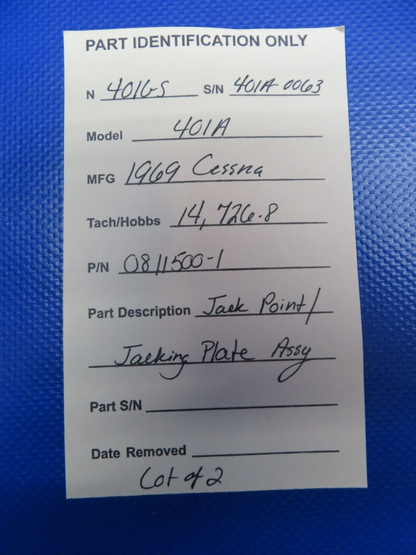 PART IDENTIFICATION ONLY
N 401GS S/N 401A-0063
Model 401A
MFG 1969 Cessna
Tach/Hobbs 14,726.8
P/N 0811500-1
Part Description Jack Point/
Jacking Plate Assy
Part S/N
Date Removed
Lot of 2